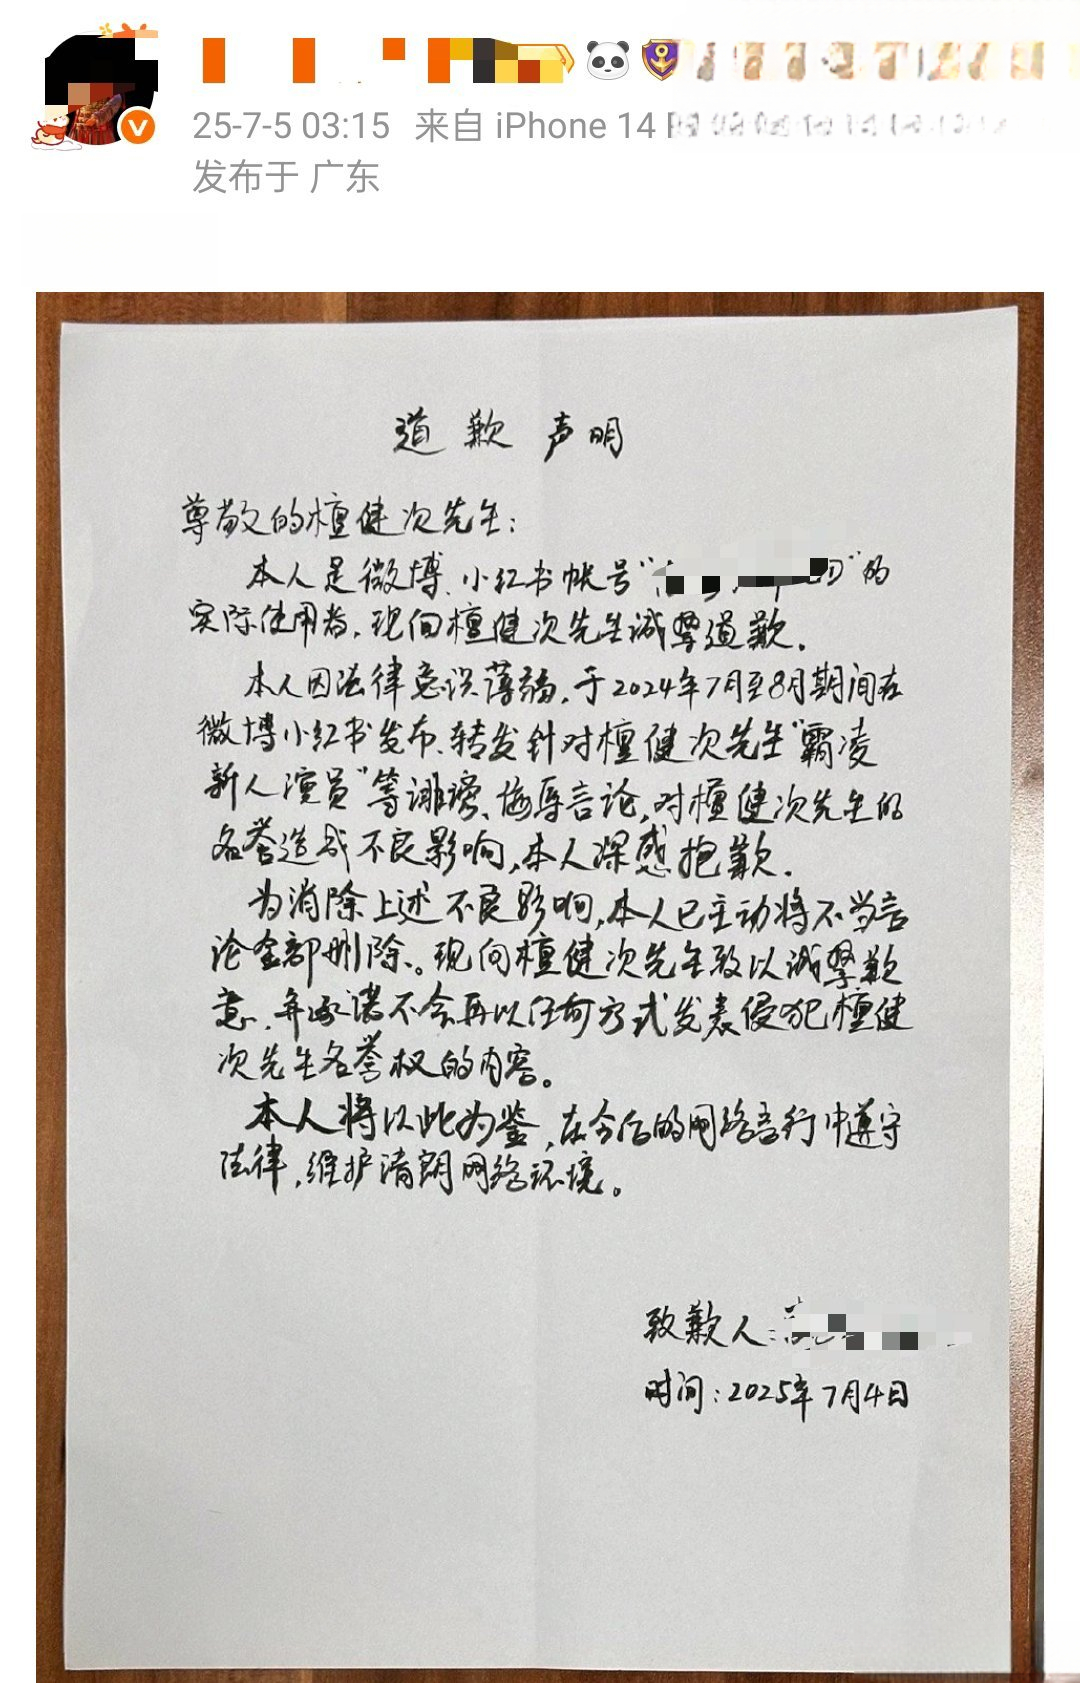 25-7-5 03:15 来自 iPhone 14
发布于 广东
道歉声明
尊敬的檀健次先生:
本人是微博、小红书帐号“ ”的
实际使用者,现向檀健次先生诚挚道歉.
本人因法律意识薄弱,于2024年7月至8月期间在
微博小红书发布、转发针对檀健次先生“霸凌
新人演员”等诽谤、侮辱言论,对檀健次先生的
名誉造成不良影响,本人深感抱歉.
为消除上述不良影响,本人已主动将不当言
论全部删除、。现向檀健次先生致以诚挚歉
意,并承诺不会再以任何方式发表侵犯檀健
次先生名誉权的内容。
本人将以此为鉴,在今后的网络言行中遵守
法律,维护清朗网络环境。
致歉人:
时间:2025年7月4日